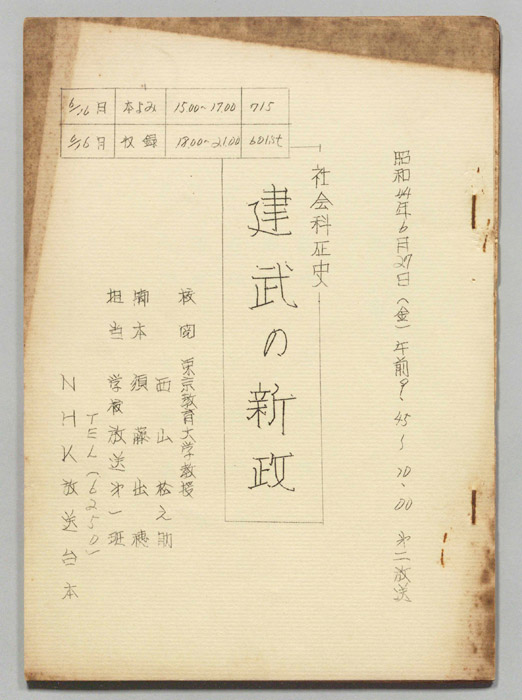 昭和44年6月27日(金)午前9.45〜10.00 オ二放送
社会科歴史
建武の新政
6/16月 本よみ 15.00〜17.00 715
6/16月 収録 18.00〜21.00 601st
校閲 東京教育大学教授
西山松之助
脚本 須藤出穂
担当 学校放送オ一班
TEL(6250)
NHK放送台本